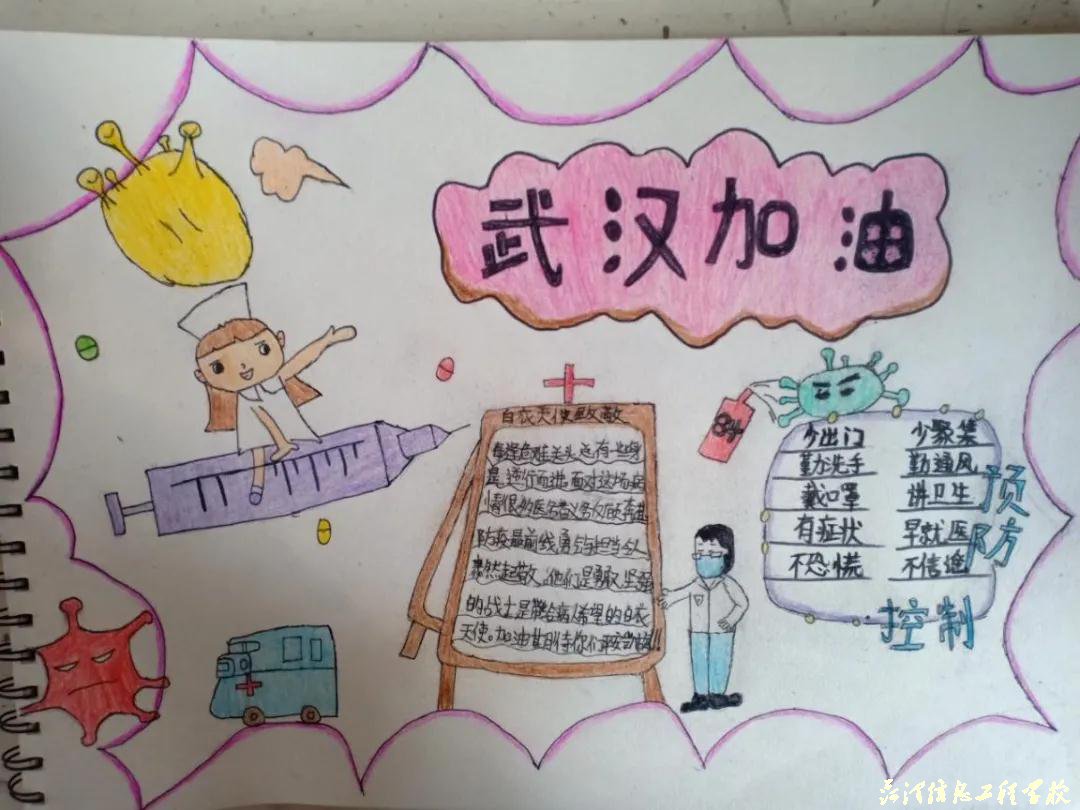 武汉加油
白衣天使致敬
每逢危难关头总有一些身
是逆行而进.面对这场病
情很多医务者义务奔赴
防疫最前线勇于担当令人
肃然起敬.他们是勇敢.坚强
的战士是带给病人希望的白衣
天使。加油期待你们平安!!
84
少出门 少聚集
勤洗手 勤通风
戴口罩 讲卫生
有症状 早就医
不恐慌 不信谣
预防
控制
信息工程学校